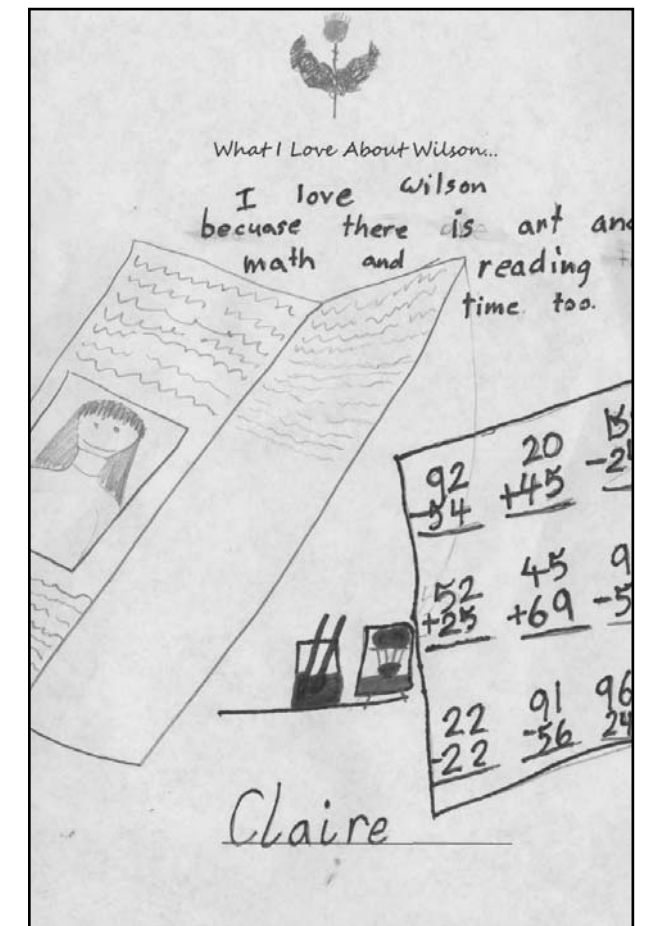 What I Love About Wilson...
I love wilson
becuase there is art and
math and reading
time too.
92
-54
20
+45
52
+25
45
+69
22
-22
91
-56
96
24
Claire